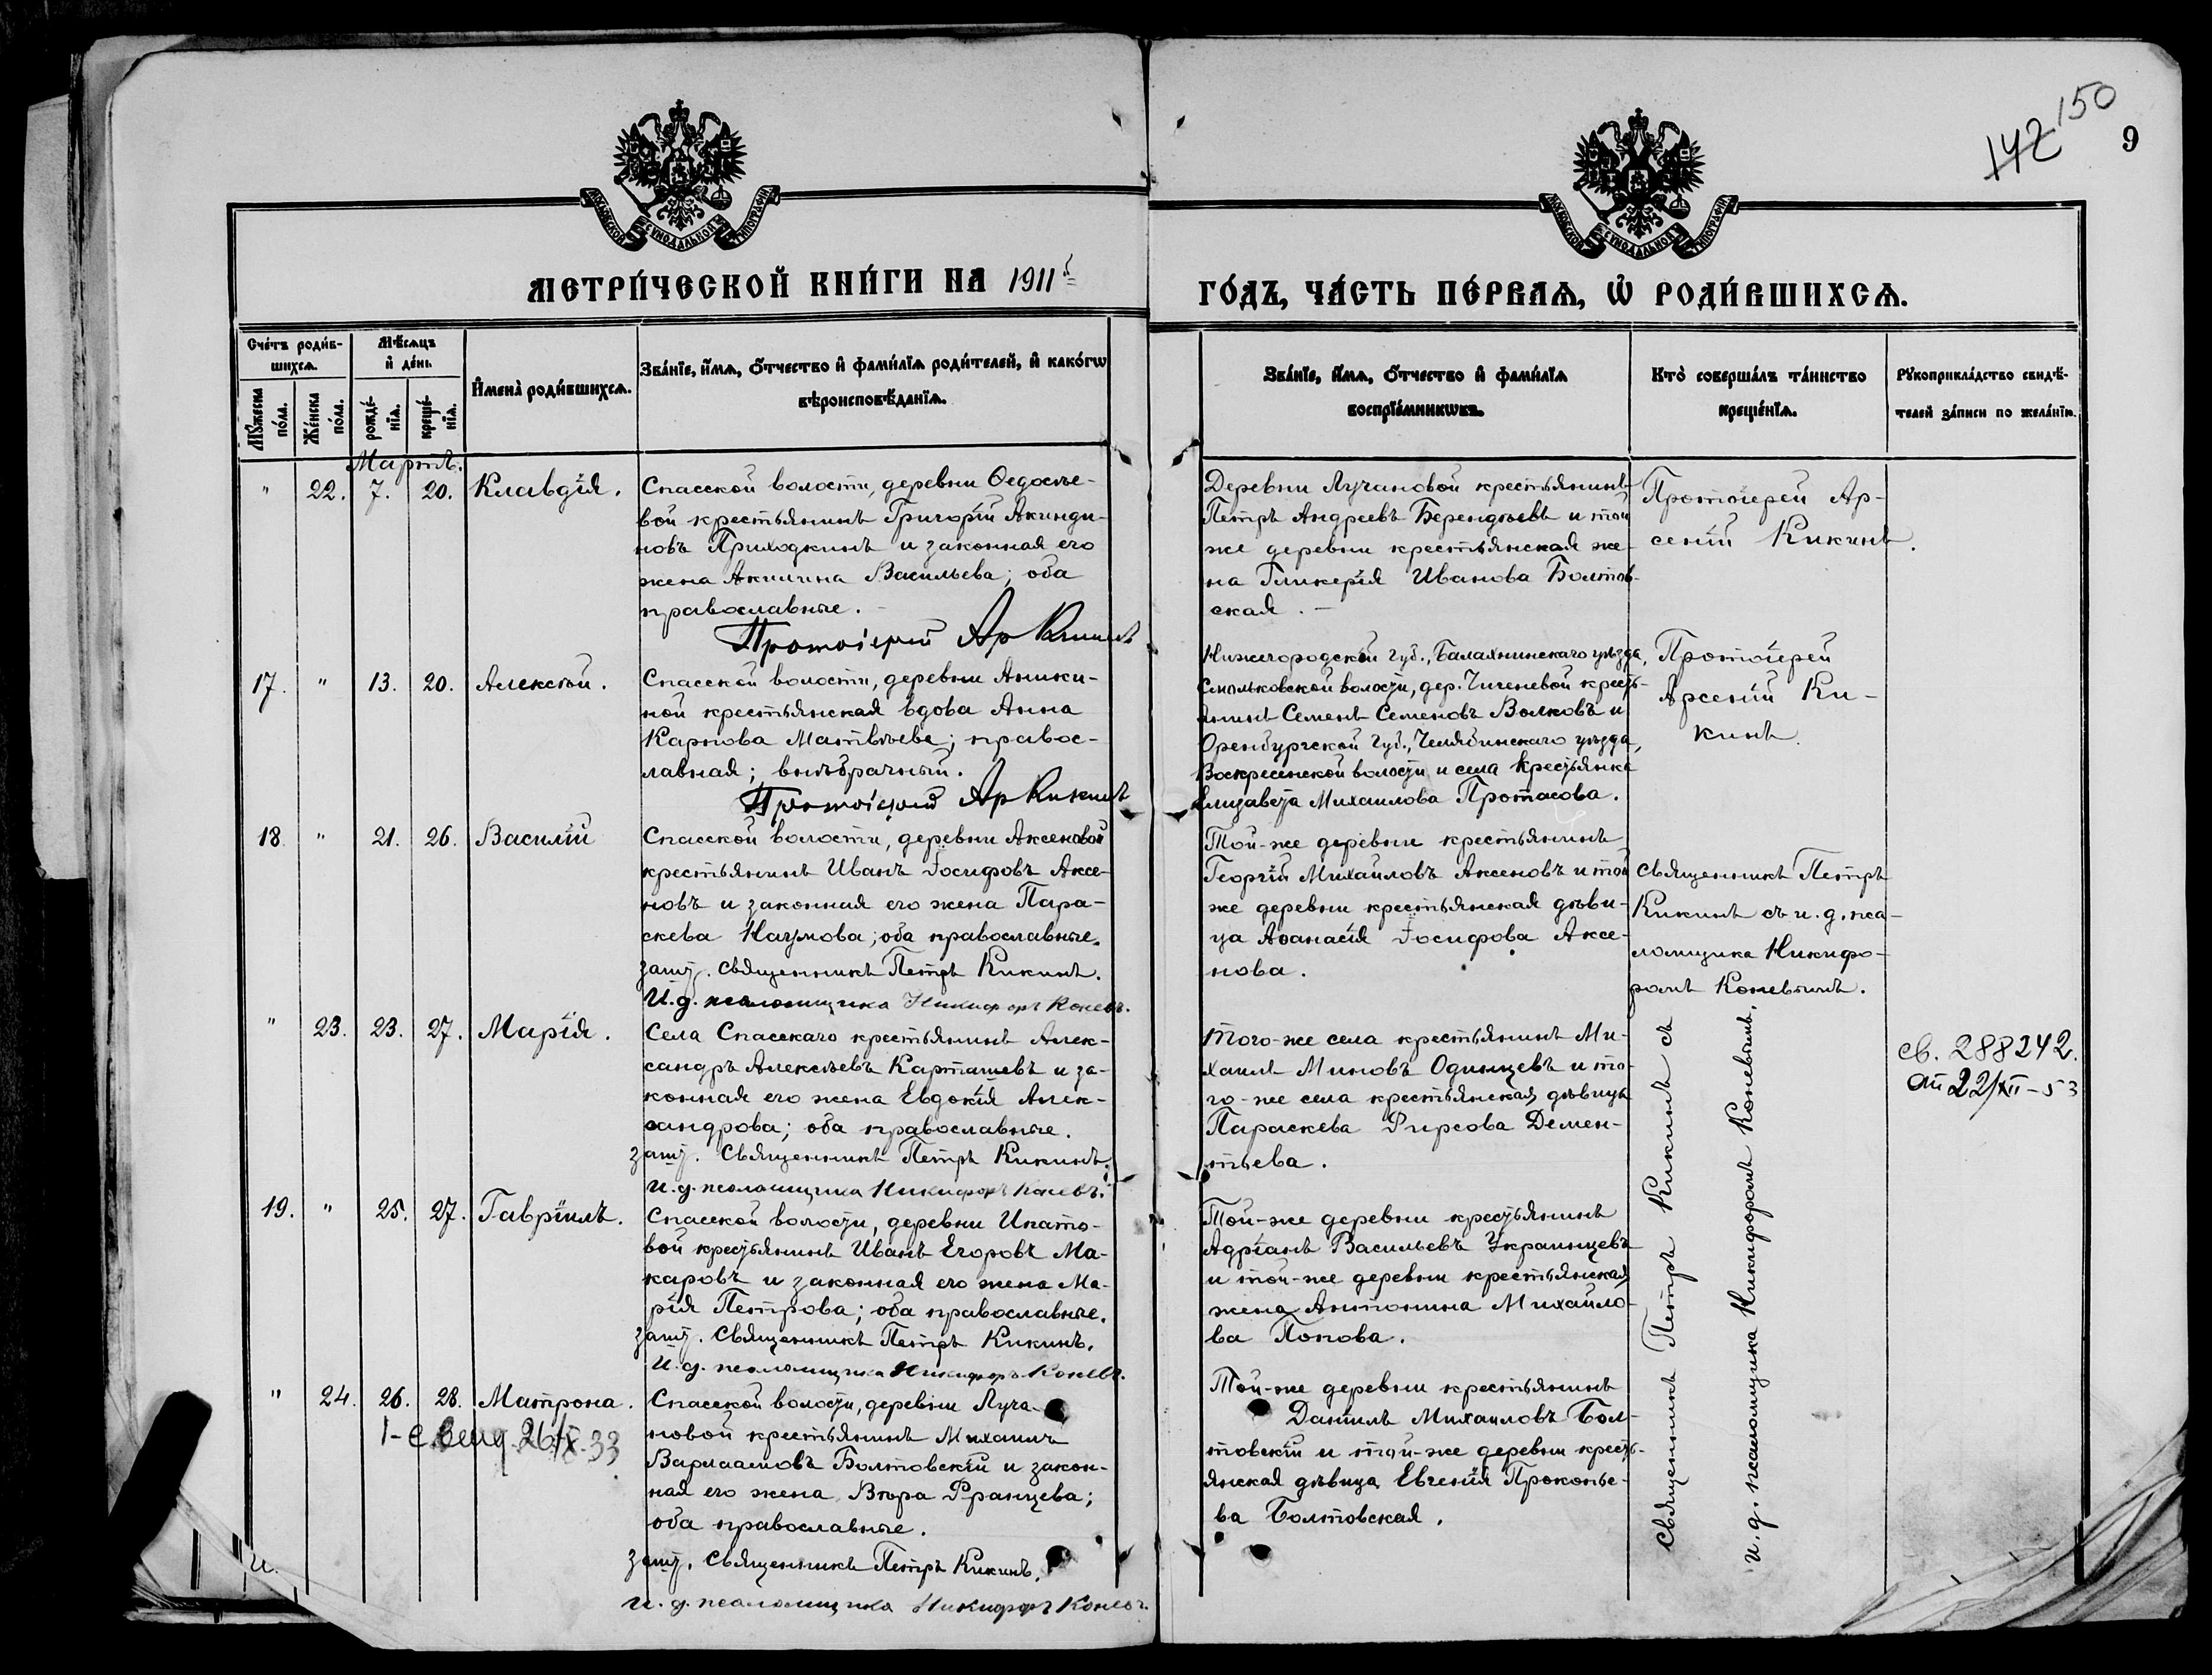 142 150
9
МОСКОВСКОЙ СѴНОДАЛЬНОЙ ТИПОГРАФІИ
МОСКОВСКОЙ СѴНОДАЛЬНОЙ ТИПОГРАФІИ
МЕТРИ́ЧЕСКОЙ КНИ́ГИ НА 1911 г.
ГО́ДЪ, ЧА́СТЬ ПЕ́РВАѦ, Ѽ РОДИ́ВШИХСѦ.
Сче́тъ роди́в-
шихсѧ.
Мѣ́сѧцъ
и҆ де́нь.
Мꙋ́жеска
по́ла.
Же́нска
по́ла.
рожде́-
нїѧ.
креще́-
нїѧ.
И҆мена̀ роди́вшихсѧ.
Зва́нїе, и҆́мѧ, ѻ҆́тчество и҆ фамі́лїѧ роди́телей, и҆ како́гѡ
вѣроисповѣ́данїѧ.
Зва́нїе, и҆́мѧ, ѻ҆́тчество и҆ фамі́лїѧ
воспрїе́мникѡвъ.
Кто̀ соверша́лъ та́инство
креще́нїѧ.
Рꙋкоприкла́дство свидѣ́-
телей за́писи по жела́нїю.
Мартъ.
" 22. 7. 20. Клавдія.
Спасской волости, деревни Ѳедосѣе-
вой крестьянинъ Григорій Акинди-
новъ Приходкинъ и законная его
жена Акилина Васильева; оба
православные.
Протоіерей Ар Кикинъ
Деревни Лучановой крестьянинъ
Петръ Андреевъ Берендѣевъ и той
же деревни крестьянская же-
на Гликерія Иванова Болтов-
ская. —
Протоіерей Ар-
сеній Кикинъ.
17. " 13. 20. Алексѣй.
Спасской волости, деревни Аники-
ной крестьянская вдова Анна
Карпова Матвѣева; правос-
лавная; внѣбрачный.
Протоіерей Ар Кикинъ
Нижегородской губ., Балахнинскаго уѣзда,
Смольковской волости, дер. Чиченевой кресть-
янинъ Семенъ Семеновъ Волковъ и
Оренбургской губ., Челябинскаго уѣзда,
Воскресенской волости и села крестьянка
Елизавета Михаилова Протасова.
Протоіерей
Арсеній Ки-
кинъ.
18. " 21. 26. Василій
Спасской волости, деревни Аксеновой
крестьянинъ Иванъ Іосифовъ Аксе-
новъ и законная его жена Пара-
скева Наумова; оба православные.
Священникъ Петръ Кикинъ.
И. д. псаломщика Никифоръ Коневъ.
Той-же деревни крестьянинъ
Георгій Михаиловъ Аксеновъ и той
же деревни крестьянская дѣви-
ца Аѳанасія Іосифова Аксе-
нова.
Священникъ Петръ
Кикинъ съ и. д. пса-
ломщика Никифо-
ромъ Коневымъ.
" 23. 23. 27. Марія.
Села Спасскаго крестьянинъ Алек-
сандръ Алексѣевъ Карташевъ и за-
конная его жена Евдокія Алек-
сандрова; оба православные.
Священникъ Петръ Кикинъ.
И. д. псаломщика Никифоръ Коневъ.
Того-же села крестьянинъ Ми-
хаилъ Миновъ Одинцевъ и то-
го-же села крестьянская дѣвица
Параскева Фирсова Демен-
тьева.
Священникъ Петръ Кикинъ съ
и. д. псаломщика Никифоромъ Коневымъ.
св. 288242.
от 22/XII-53
19. " 25. 27. Гавріилъ.
Спасской волости, деревни Ипато-
вой крестьянинъ Иванъ Егоровъ Ма-
каровъ и законная его жена Ма-
рія Петрова; оба православные.
Священникъ Петръ Кикинъ.
И. д. псаломщика Никифоръ Коневъ.
Той-же деревни крестьянинъ
Адріанъ Васильевъ Украинцевъ
и той-же деревни крестьянская
жена Антонина Михаило-
ва Попова.
" 24. 26. 28. Матрона.
26/X-33
Спасской волости, деревни Луча-
новой крестьянинъ Михаилъ
Варлаамовъ Болтовскій и закон-
ная его жена Вѣра Францева;
оба православные.
Священникъ Петръ Кикинъ.
И. д. псаломщика Никифоръ Коневъ.
Той-же деревни крестьянинъ
Даніилъ Михаиловъ Бол-
товскій и той-же деревни кресть-
янская дѣвица Евгенія Прокопье-
ва Болтовская.